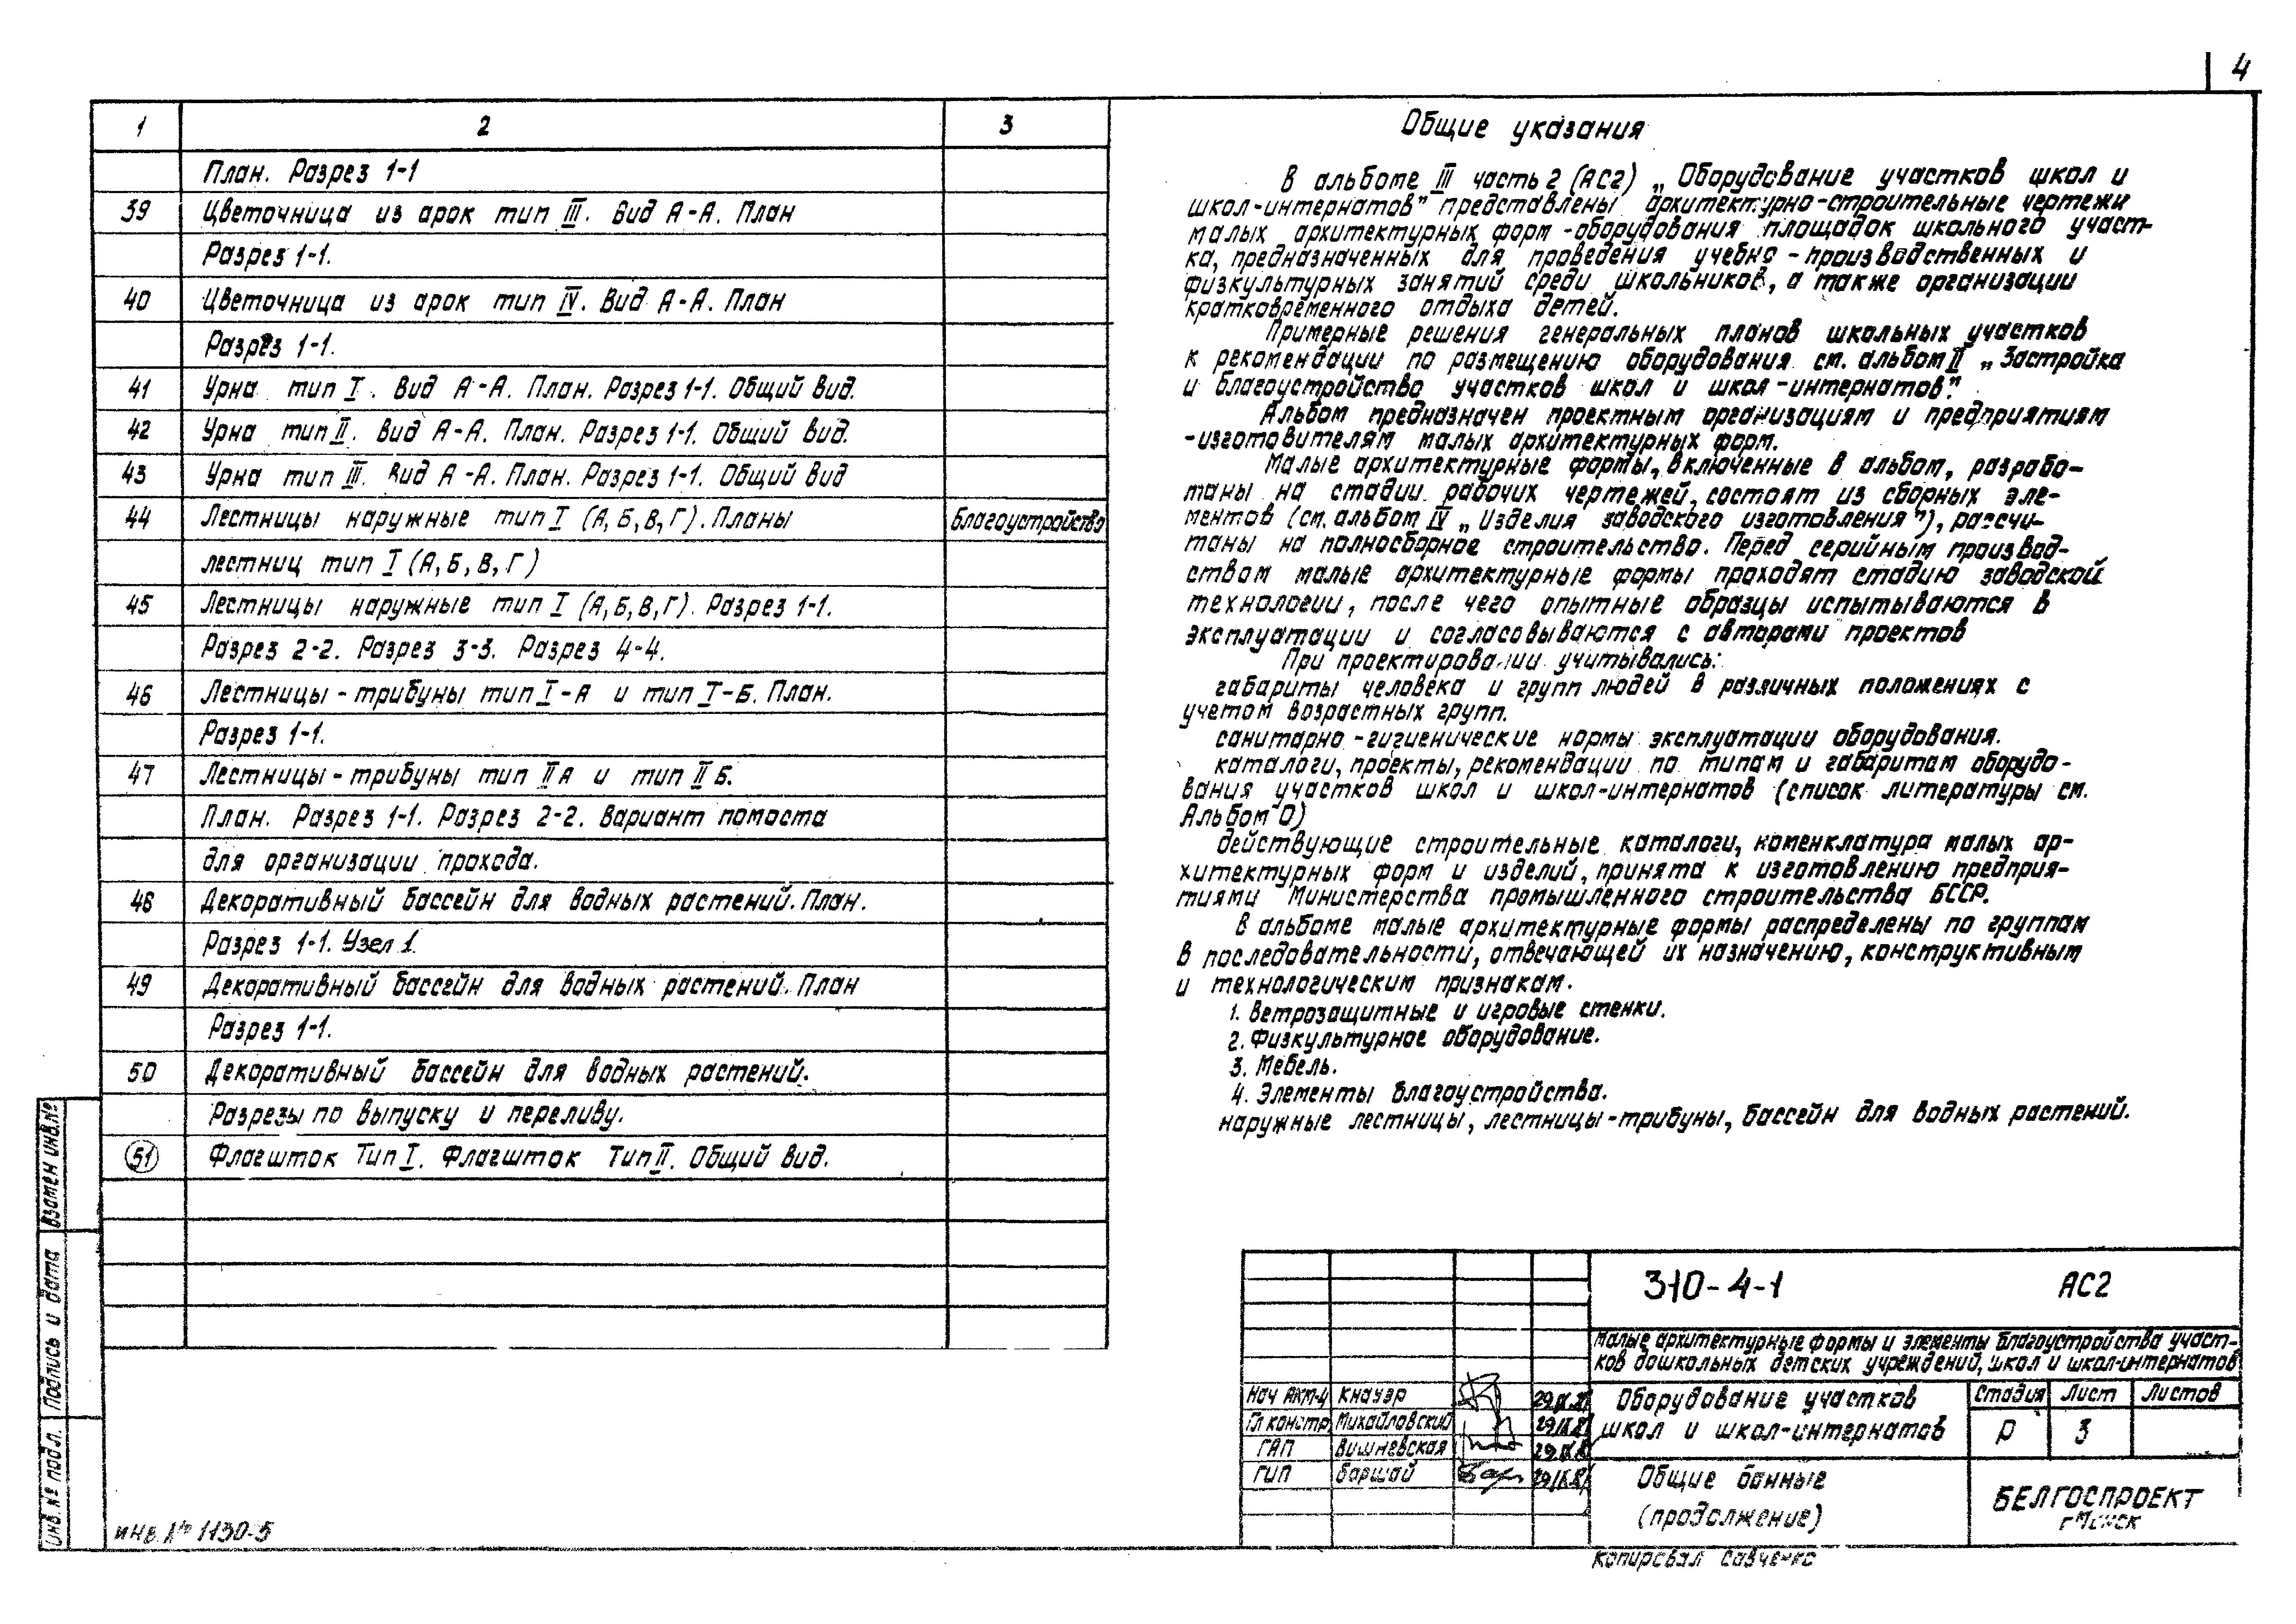 4
1 2 3
План. Разрез 1-1
39 Цветочница из арок тип III. Вид А-А. План
Разрез 1-1.
40 Цветочница из арок тип IV. Вид А-А. План
Разрез 1-1.
41 Урна тип I. Вид А-А. План. Разрез 1-1. Общий вид.
42 Урна тип II. Вид А-А. План. Разрез 1-1. Общий вид.
43 Урна тип III. Вид А-А. План. Разрез 1-1. Общий вид
44 Лестницы наружные тип I (А,Б,В,Г). Планы Благоустройство
лестниц тип I (А,Б,В,Г)
45 Лестницы наружные тип I (А,Б,В,Г). Разрез 1-1.
Разрез 2-2. Разрез 3-3. Разрез 4-4.
46 Лестницы-трибуны тип I-А и тип I-Б. План.
Разрез 1-1.
47 Лестницы-трибуны тип II А и тип II Б.
План. Разрез 1-1. Разрез 2-2. Вариант помоста
для организации прохода.
48 Декоративный бассейн для водных растений. План.
Разрез 1-1. Узел 1.
49 Декоративный бассейн для водных растений. План
Разрез 1-1.
50 Декоративный бассейн для водных растений.
Разрезы по выпуску и переливу.
51 Флагшток Тип I. Флагшток Тип II. Общий вид.
Общие указания
В альбоме III часть 2 (АС2) „Оборудование участков школ и
школ-интернатов" представлены архитектурно-строительные чертежи
малых архитектурных форм-оборудования площадок школьного участ-
ка, предназначенных для проведения учебно-производственных и
физкультурных занятий среди школьников, а также организации
кратковременного отдыха детей.
Примерные решения генеральных планов школьных участков
к рекомендации по размещению оборудования см. альбом II „Застройка
и благоустройство участков школ и школ-интернатов".
Альбом предназначен проектным организациям и предприятиям
-изготовителям малых архитектурных форм.
Малые архитектурные формы, включенные в альбом, разрабо-
таны на стадии рабочих чертежей, состоят из сборных эле-
ментов (см. альбом IV „Изделия заводского изготовления"), рассчи-
таны на полносборное строительство. Перед серийным производ-
ством малые архитектурные формы проходят стадию заводской
технологии, после чего опытные образцы испытываются в
эксплуатации и согласовываются с авторами проектов
При проектировании учитывались:
габариты человека и групп людей в различных положениях с
учетом возрастных групп.
санитарно-гигиенические нормы эксплуатации оборудования.
каталоги, проекты, рекомендации по типам и габаритам оборудо-
вания участков школ и школ-интернатов (список литературы см.
Альбом 0)
действующие строительные каталоги, номенклатура малых ар-
хитектурных форм и изделий, принята к изготовлению предприя-
тиями Министерства промышленного строительства БССР.
В альбоме малые архитектурные формы распределены по группам
в последовательности, отвечающей их назначению, конструктивным
и технологическим признакам.
1. Ветрозащитные и игровые стенки.
2. Физкультурное оборудование.
3. Мебель.
4. Элементы благоустройства.
наружные лестницы, лестницы-трибуны, бассейн для водных растений.
310-4-1 АС2
Малые архитектурные формы и элементы благоустройства участ-
ков дошкольных детских учреждений, школ и школ-интернатов
Нач АКМ-4 Кнауэр
Гл констр. Михайловский
ГАП Вишневская
ГИП Баршай
Оборудование участков
школ и школ-интернатов
Стадия Лист Листов
Р 3
Общие данные
(продолжение)
БЕЛГОСПРОЕКТ
г Минск
Копировал Савченко
Взамен инв.№
Подпись и дата
Инв. № подл.
инв. № 1130-5